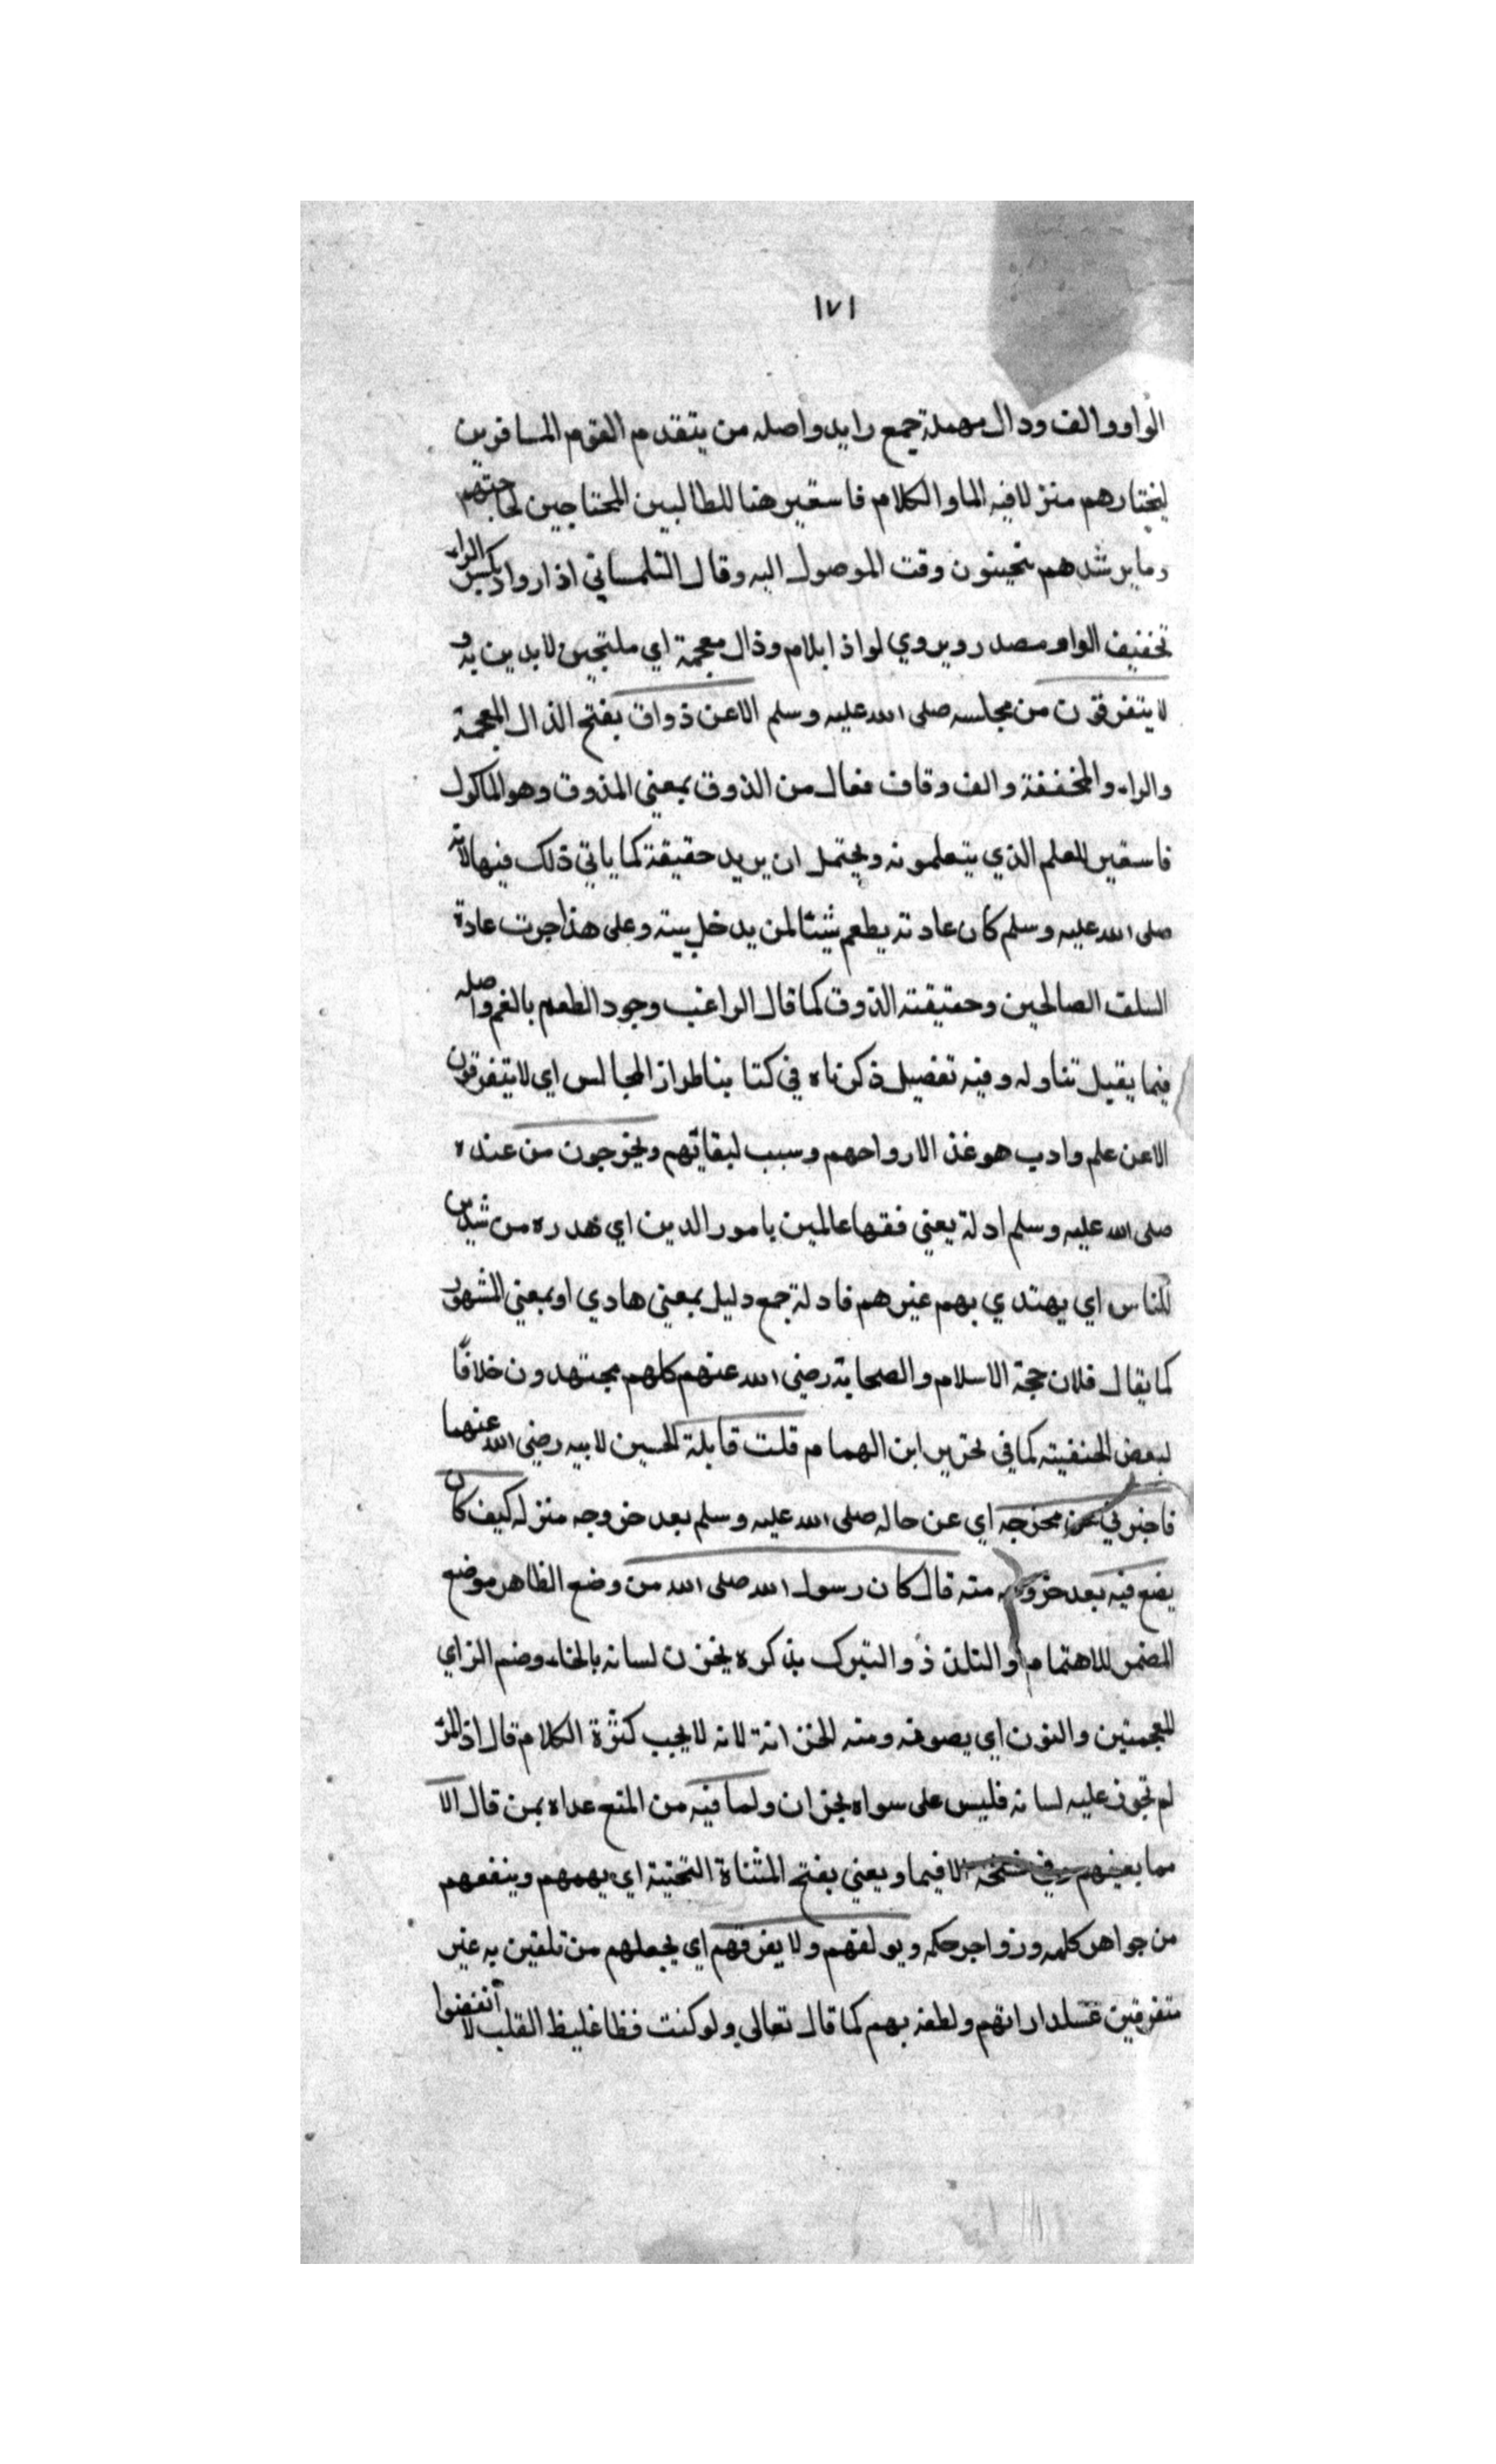 ١٧١
الواو والف ودال مهملة جمع رايد واصله من يتقدم القوم المسافرين
ليختارهم منزلا فيه الما والكلام فاستعير هنا للطالبين المحتاجين لحاجتهم
وما يرشدهم وقت الموصول اليه وقال التلمساني اذا روادا بكسر الراء
تخفيف الواو مصدر ويروي لواذا بلام وذال معجمة اي ملتجين لايدين به و
لا يتفرقون من مجلسه صلى الله عليه وسلم الا عن ذواق بفتح الذال المعجمة
والراء والمخففة والف وقاف فعال من الذوق بمعنى المذوق وهو الماكول
فاستعير للعلم الذي يتعلمونه ويحتمل ان يريد حقيقة كما ياتي ذلك فيها لانه
صلى الله عليه وسلم كان عادته يطعم شيئا لمن يدخل بيته وعلى هذا جرت عادة
السلف الصالحين وحقيقته الذوق كما قال الراغب وجود الطعم بالفم واصله
فيما يقيل تناوله وفيه تفصيل ذكرناه في كتابنا طراز المجالس اي لا يتفرقون
الا عن علم وادب هو غذا لارواحهم وسبب لبقائهم ويخرجون من عنده
صلى الله عليه وسلم ادلة يعني فقها عالمين بامور الدين اي من
للناس اي يهتدي بهم غيرهم فادلة جمع دليل بمعنى هادي او بمعني المشهور
كما يقال فلان حجة الاسلام والصحابة رضى الله عنهم كلهم مجتهدون خلافًا
لبعض الحنفية كما في تحرير ابن الهمام قلت قايلة الحسين لابيه رضى الله عنهما
فاخبرني عن مخرجه اي عن حاله صلى الله عليه وسلم بعد خروجه منزله كيف كان
يضع فيه بعد خروجه منه قال كان رسول الله صلى الله من وضع الظاهر موضع
المضمر للاهتمام او التلذذ والتبرك بذكره يخزن لسانه بالخاء وضم الزاي
المعجمتين والنون اي يصونه ومنه الخزانة لانه لا يحب كثرة الكلام قال اذ المرء
لم تجوز عليه لسانه فليس على سواه بخزان ولما فيه من المنع عداه بمن قال الا
مما يعنيهم وفي نسخة الا فيما ويعني بفتح المثناة التحتية اي يهمهم وينفعهم
من جواهر كلمه وزواجر حكمه ويولفهم ولا يفرقهم اي يجعلهم من تلفين به غير
متفرقين داراتهم ولطفه بهم كما قال تعالى ولو كنت فظا غليظ القلب لا أنفضوا